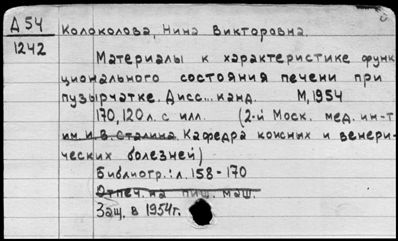 Д 54
1242
Колоколова, Нина Викторовна.
Материалы к характеристике функ-
ционального состояния печени при
пузырчатке. Дисс... канд. М, 1954
170, 120 л. с илл. (2-й Моск. мед. ин-т
им. И. В. Сталина. Кафедра кожных и венери-
ческих болезней)
Библиогр.: л. 158-170
Отпеч. на пиш. маш.
Защ. в 1954г.